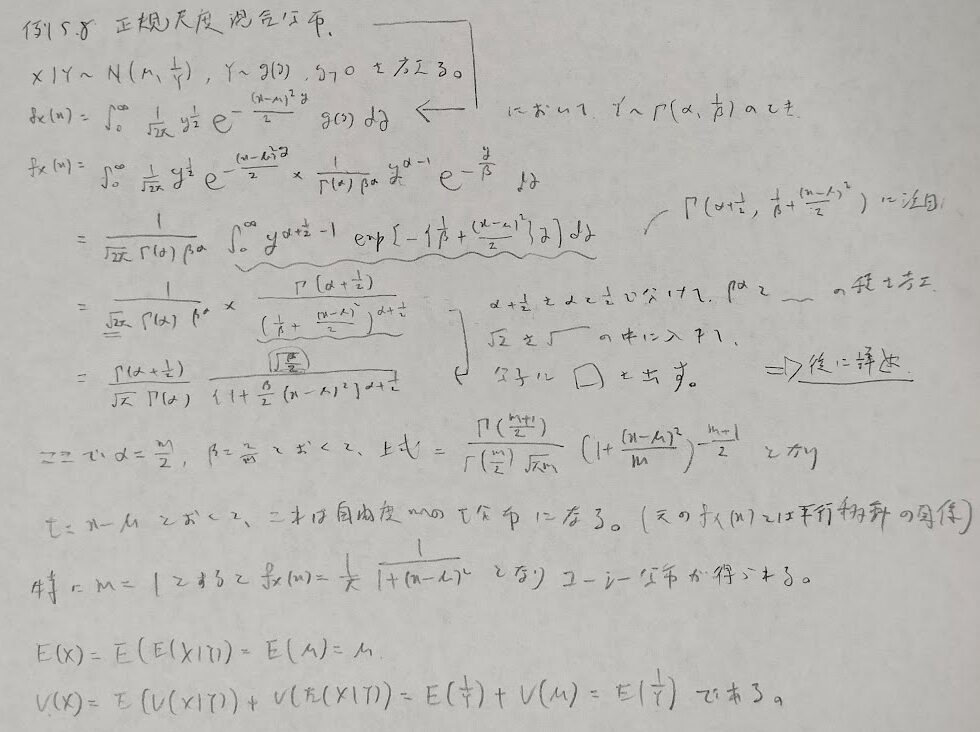 例5.8 正規尺度混合分布.
X|Y ~ N(μ, 1/Y), Y ~ g(y), y>0 を考える。
fx(x) = ∫₀^∞ 1/√2π y^{1/2} e^{-(x-μ)²y/2} g(y) dy ← において, Y ~ Γ(α, 1/β) のとき
fx(x) = ∫₀^∞ 1/√2π y^{1/2} e^{-(x-μ)²y/2} × 1/(Γ(α) β^α) y^{α-1} e^{-y/β} dy
= 1/(√2π Γ(α) β^α) ∫₀^∞ y^{α+1/2-1} exp[-{1/β + (x-μ)²/2}y] dy Γ(α+1/2, 1/β + (x-μ)²/2) に注目
= 1/(√2π Γ(α) β^α) × Γ(α+1/2)/(1/β + (x-μ)²/2)^{α+1/2} α+1/2 を α と 1/2 で分けて, β^α と 〰 の積を考え
√2 を √ の中に入れて,
= Γ(α+1/2)/(√π Γ(α)) √(β/2)/{1+β/2 (x-μ)²}^{α+1/2} 分子に □ を出す。 ⇒ 後に詳述
ここで α = m/2, β = 2/m とおくと, 上式 = Γ((m+1)/2)/(Γ(m/2) √πm) (1 + (x-μ)²/m)^{-(m+1)/2} となり
t = x-μ とおくと, これは自由度mのt分布になる。(元の fx(x) とは平行移動の関係)
特に m = 1 とすると fx(x) = 1/π 1/(1+(x-μ)²) となり コーシー分布が得られる。
E(X) = E(E(X|Y)) = E(μ) = μ
V(X) = E(V(X|Y)) + V(E(X|Y)) = E(1/Y) + V(μ) = E(1/Y) である。